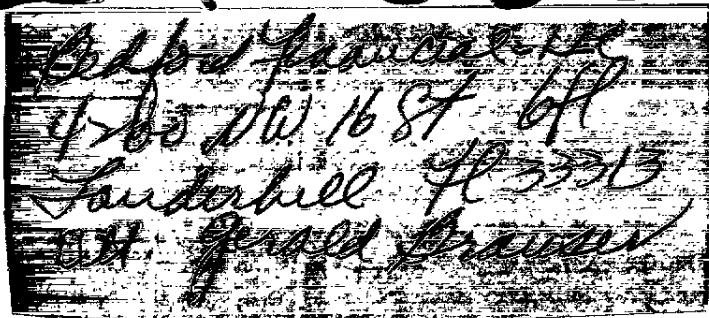 Bedford Financial LLC
4200 NW 16 St 6fl
Lauderhill Fl 33313
att. Gerald Brauser